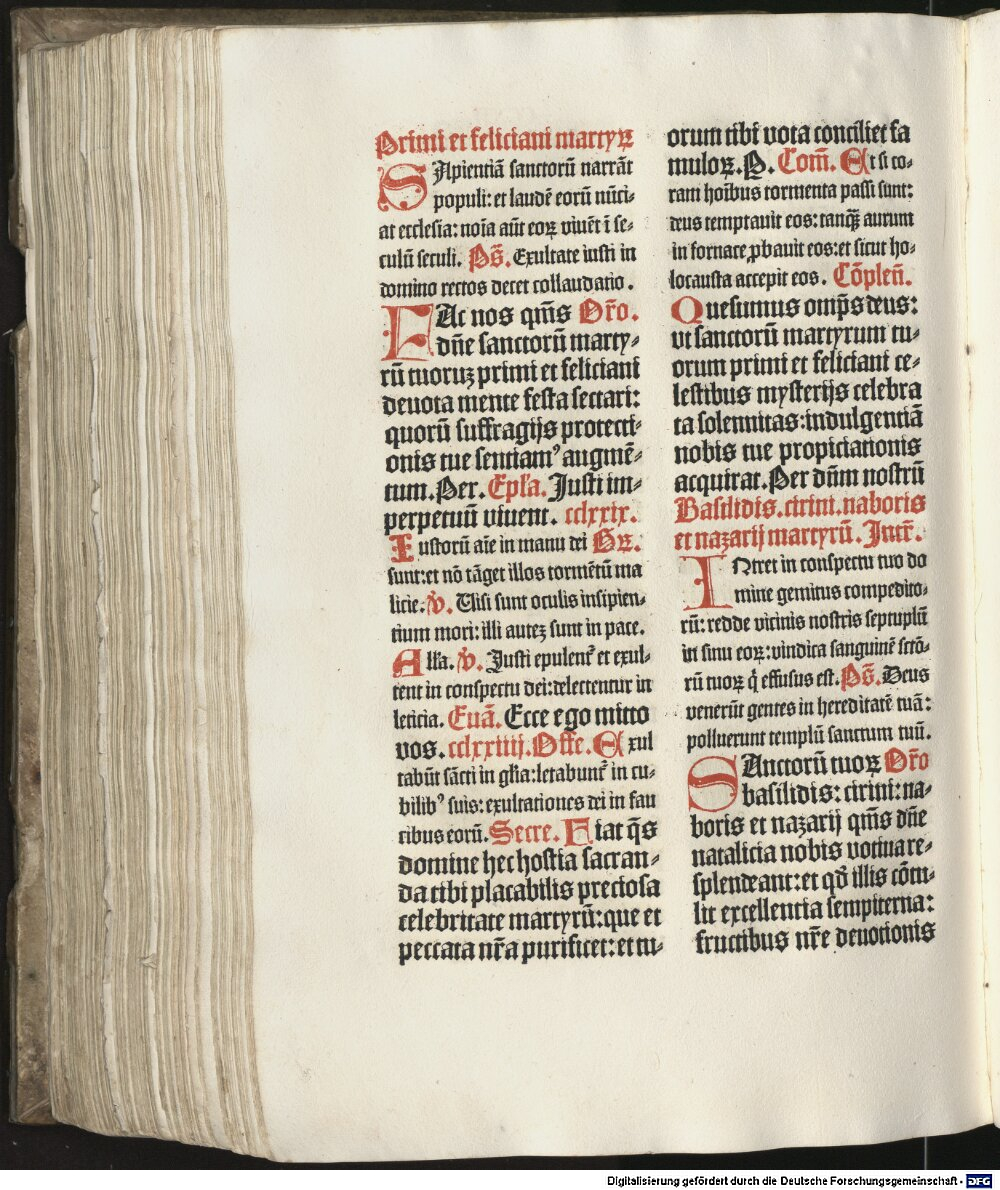 Primi et feliciani martyrꝝ
SApientiā sanctorū narrāt
populi: et laudē eorū nūci-
at ecclesia: noīa aūt eorꝝ viuēt ī se-
culū seculi. Ps̄. Exultate iusti in
domino rectos decet collaudatio.
FAc nos qm̄s Or̄o.
dn̄e sanctorū marty-
rū tuoruꝫ primi et feliciani
deuota mente festa sectari:
quorū suffragijs protecti-
onis tue sentiamꝰ augmē-
tum. Per. Epl̄a. Justi im-
perpetuū viuent. cclxxix.
Iustorū aīe in manu dei Gr̄.
sunt: et nō tāget illos tormētū ma
licie: v̄. Uisi sunt oculis insipien-
tium mori: illi auteꝫ sunt in pace.
All̄a. v̄. Justi epulent᷑ et exul-
tent in conspectu dei: delectentur in
leticia. Euā. Ecce ego mitto
vos. cclxxiiij. Offe. Exul
tabūt sācti in gl̄ia: letabunt᷑ in cu-
bilibꝰ suis: exultationes dei in fau
cibus eorū. Secre. Fiat q̄s
domine hec hostia sacran-
da tibi placabilis preciosa
celebritate martyrū: que et
peccata nr̄a purificet: et tu-
orum tibi vota conciliet fa
mulorꝝ. P. Com̄. Et si co-
ram hoīibus tormenta passi sunt:
deus temptauit eos: tanqꝫ aurum
in fornace ꝓbauit eos: et sicut ho-
locausta accepit eos. Cōplen̄.
Quesumus omp̄s deus:
vt sanctorū martyrum tu-
orum primi et feliciani ce-
lestibus mysterijs celebra
ta solennitas: indulgentiā
nobis tue propiciationis
acquirat. Per dn̄m nostrū
Basilidis. cirini. naboris
et nazarij martyrū. Intr̄.
INtret in conspectu tuo do
mine gemitus compedito-
rū: redde vicinis nostris septuplū
in sinu eorꝝ: vindica sanguinē sctō-
rū tuorꝝ q̇ effusus est. Ps̄. Deus
venerūt gentes in hereditatē tuā:
polluerunt templū sanctum tuū.
SAnctorū tuorꝝ Or̄o
basilidis: cirini: na-
boris et nazarij qm̄s dn̄e
natalicia nobis votiua re-
splendeant: et qd̄ illis cōtu-
lit excellentia sempiterna:
fructibus nr̄e deuotionis
Digitalisierung gefördert durch die Deutsche Forschungsgemeinschaft - DFG